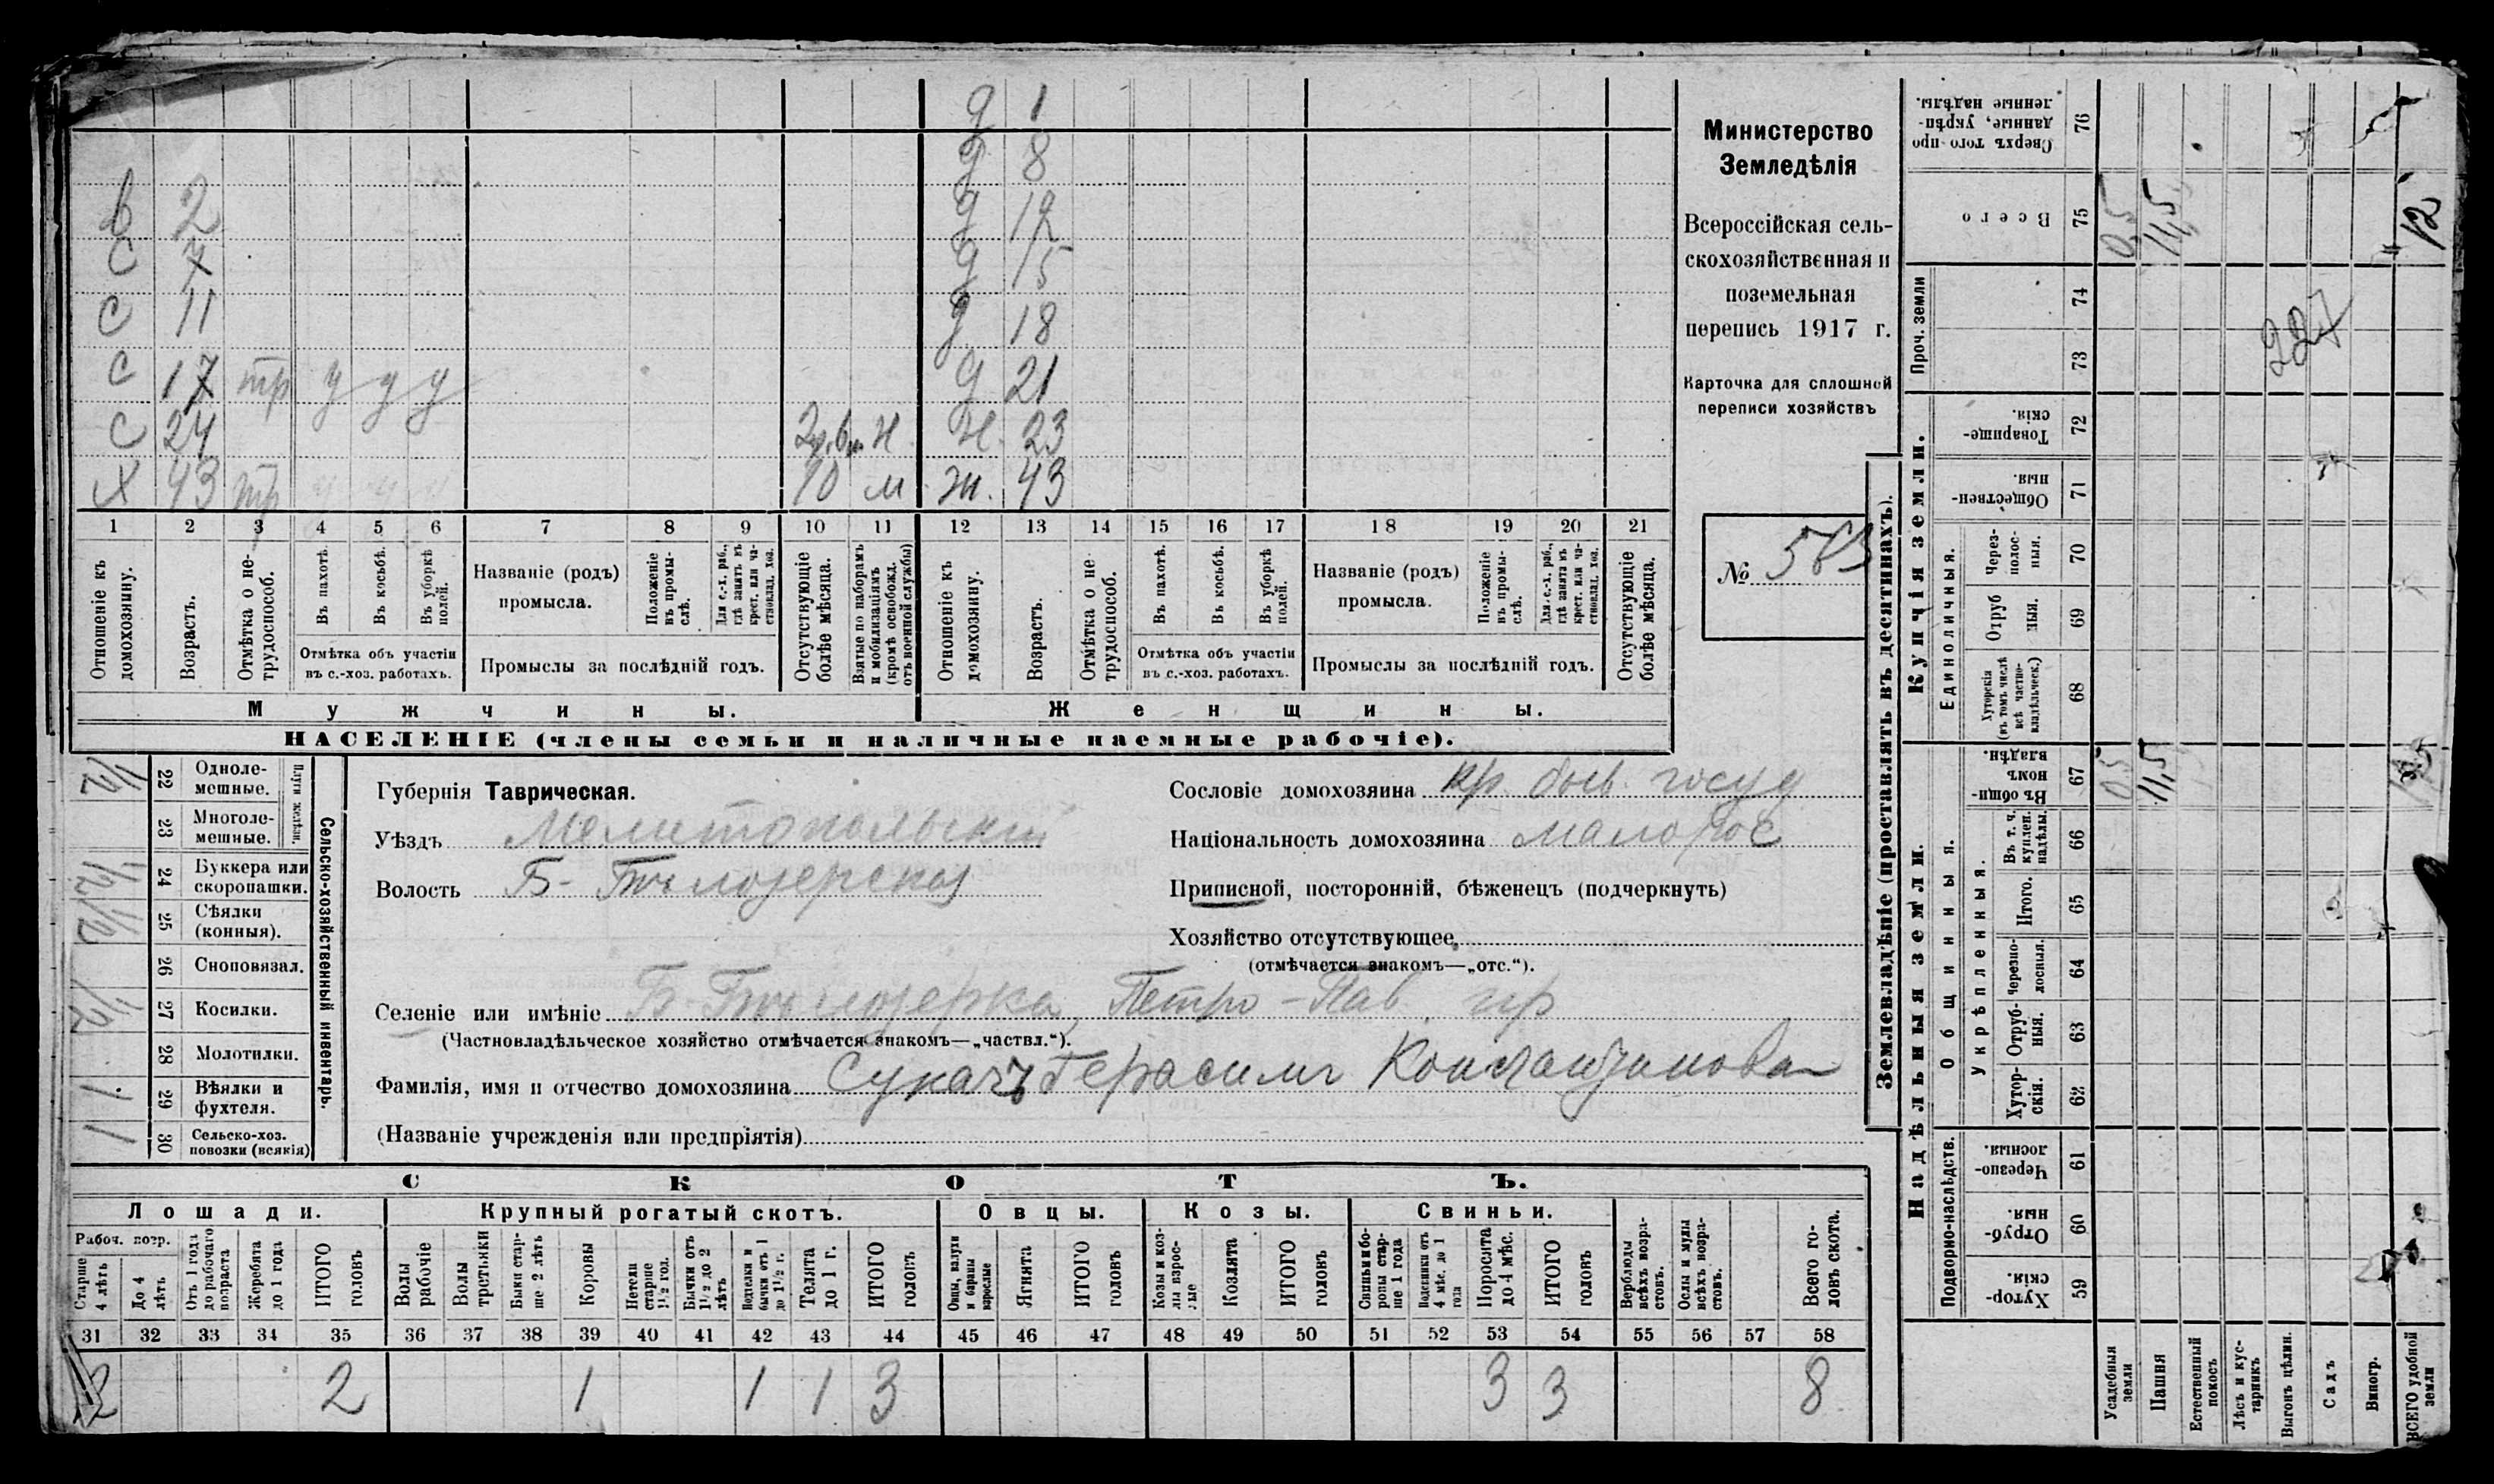 д 1
д 8
в 2 д 12
с 7 д 15
с 11 д 18
с 17 тр у у у д 21
с 24 н ж. 23
х 43 тр 10 м ж. 43
1 2 3 4 5 6 7 8 9 10 11 12 13 14 15 16 17 18 19 20 21
Отношеніе къ домохозяину.
Возрастъ.
Отмѣтка о не-трудоспособ.
Въ пахотѣ.
Въ косьбѣ.
Въ уборкѣ полей.
Отмѣтка объ участіи
въ с.-хоз. работахъ.
Названіе (родъ)
промысла.
Положеніе въ промыслѣ.
Для с.-х. раб., гдѣ занятъ въ крест. или частновлад. хоз.
Промыслы за послѣдній годъ.
Отсутствующіе болѣе мѣсяца.
Взятые по наборамъ и мобилизаціямъ (кромѣ освобожд. отъ военной службы)
Отношеніе къ домохозяину.
Возрастъ.
Отмѣтка о не трудоспособ.
Въ пахотѣ.
Въ косьбѣ.
Въ уборкѣ полей.
Отмѣтка объ участіи
въ с.-хоз. работахъ.
Названіе (родъ)
промысла.
Положеніе въ промыслѣ.
Для с.-х. раб., гдѣ занята въ крест. или частновлад. хоз.
Промыслы за послѣдній годъ.
Отсутствующіе болѣе мѣсяца.
Мужчины.
Женщины.
НАСЕЛЕНІЕ (члены семьи и наличные наемные рабочіе).
Министерство
Земледѣлія
Всероссійская сель-
скохозяйственная и
поземельная
перепись 1917 г.
Карточка для сплошной
переписи хозяйствъ
№
Сельско-хозяйственный инвентарь.
Плуги желѣзн.
1/2 22 Одноле-
мешные.
23 Многоле-
мешные.
1/2 24 Буккера или
скоропашки.
1/2 25 Сѣялки
(конныя).
26 Сноповязал.
1/2 27 Косилки.
28 Молотилки.
1 29 Вѣялки и
фухтеля.
1 30 Сельско-хоз.
повозки (всякія)
Губернія Таврическая.
Уѣздъ Мелитопольскій
Волость Б-Бѣлозерская
Сословіе домохозяина кр. быв. госуд
Національность домохозяина малорос
Приписной, посторонній, бѣженецъ (подчеркнуть)
Хозяйство отсутствующее
(отмѣчается знакомъ—„отс.“).
Селеніе или имѣніе Б-Бѣлозерка, Петро-Пав. пр
(Частновладѣльческое хозяйство отмѣчается знакомъ—„частвл.“).
Фамилія, имя и отчество домохозяина Сукачъ Герасимъ Константинова
(Названіе учрежденія или предпріятія)
СКОТЪ.
Лошади. Крупный рогатый скотъ. Овцы. Козы. Свиньи.
Рабоч. возр.
Старше 4 лѣтъ
До 4 лѣтъ
Отъ 1 года до рабочаго возраста
Жеребята до 1 года
ИТОГО головъ
Волы рабочіе
Волы третьяки
Быки старше 2 лѣтъ
Коровы
Нетели старше 1½ год.
Бычки отъ 1½ до 2 лѣтъ
Телки и бычки отъ 1 до 1½ г.
Телята до 1 г.
ИТОГО головъ
Овцы, валухи и бараны взрослые
Ягнята
ИТОГО головъ
Козы и козлы взрослые
Козлята
ИТОГО головъ
Свиньи и боровы старше 1 года
Подсвинки отъ 4 мѣс. до 1 года
Поросята до 4 мѣс.
ИТОГО головъ
Верблюды всѣхъ возрастовъ.
Ослы и мулы всѣхъ возрастовъ.
Всего головъ скота.
31 32 33 34 35 36 37 38 39 40 41 42 43 44 45 46 47 48 49 50 51 52 53 54 55 56 57 58
2 2 1 1 1 3 3 3 8
Землевладѣніе (проставлять въ десятинахъ).
Надѣльныя земли.
Купчія земли.
Проч. земли
Подворно-наслѣдств.
Общинныя.
Укрѣпленныя.
Единоличныя.
Сверхъ того проданные, укрѣпленные надѣлы. 76
Всего 75 0,5 11,5 12
74
73
227
Товарищескія. 72
Общественныя. 71
Черезполосныя. 70
Отрубныя. 69
Хуторскія (въ томъ числѣ всѣ частновладѣльческ.) 68
Въ общинномъ владѣн. 67 0,5 11,5
Въ т. ч. куплен. надѣлы. 66
Итого. 65
Черезполосныя. 64
Отрубныя. 63
Хуторскія. 62
Черезполосныя. 61
Отрубныя. 60
Хуторскія. 59
Усадебныя земли
Пашня
Естественный покосъ
Лѣсъ и кустарникъ
Выгонъ цѣлин.
Садъ
Виногр.
ВСЕГО удобной земли